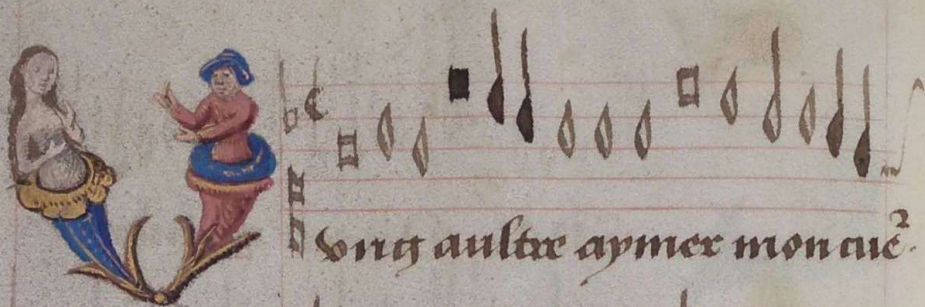 vng aultre aymer mon cuer